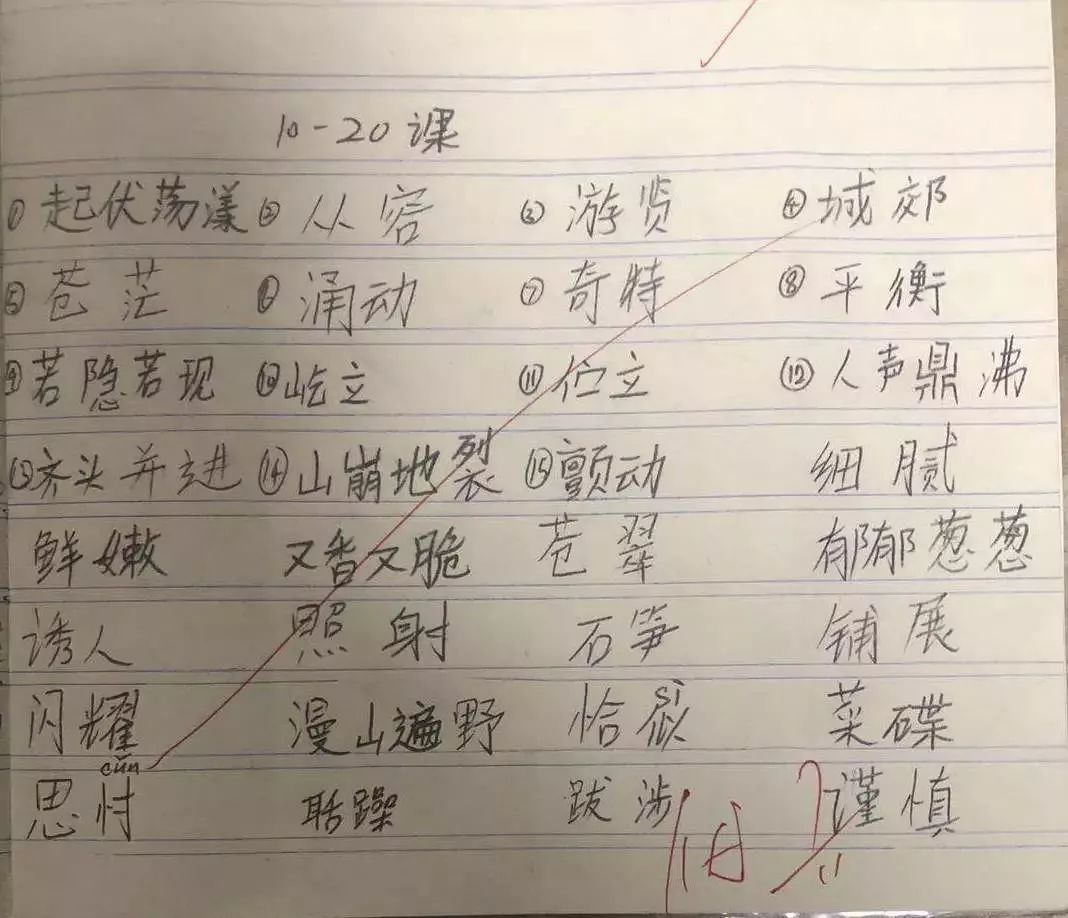 10-20课
①起伏荡漾 ②从容 ③游贤 ④城郊
⑤苍茫 ⑥涌动 ⑦奇特 ⑧平衡
⑨若隐若现 ⑩屹立 ⑪伫立 ⑫人声鼎沸
⑬齐头并进 ⑭山崩地裂 ⑮颤动 细腻
鲜嫩 又香又脆 苍翠 郁郁葱葱
诱人 照射 石笋 铺展
闪耀 漫山遍野 恰 sì 菜碟
cǔn
思忖 聒躁 跋涉 谨慎